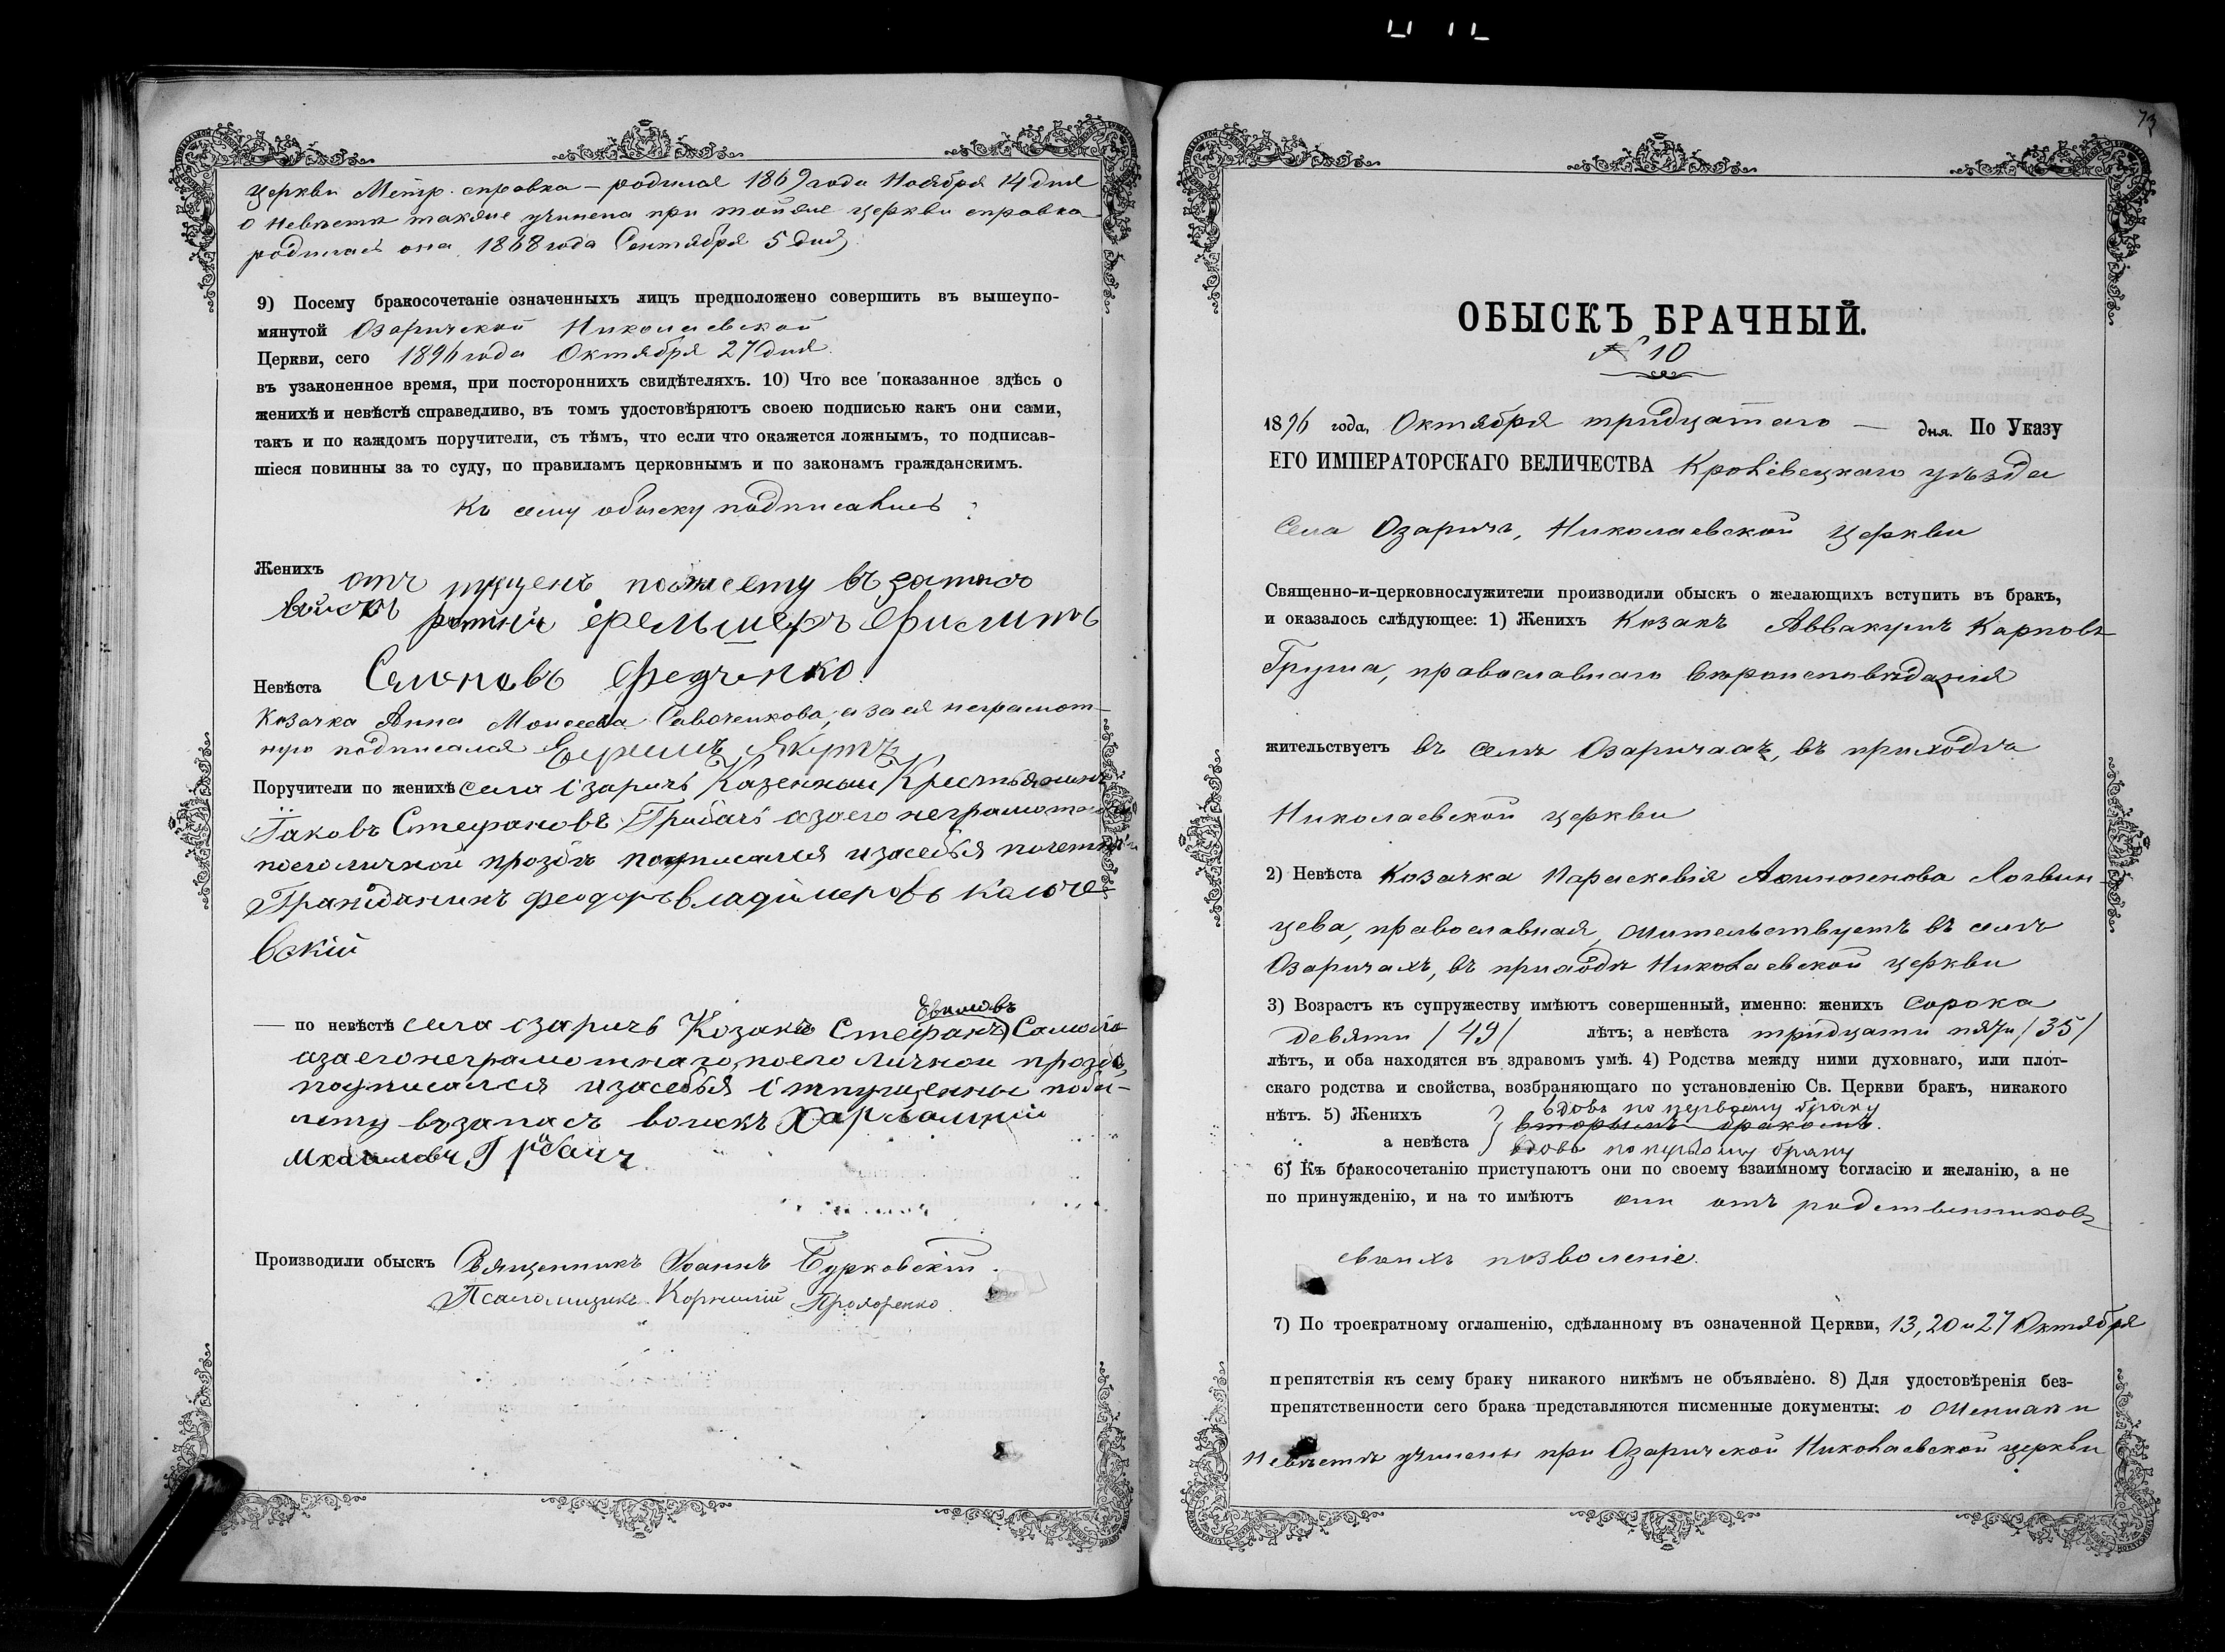 церкви Метр. справка – родился 1869 года Ноября 14 дня
о невѣстѣ также учинена при тойже церкви справка
родилась она 1868 года Сентября 5 дня
9) Посему бракосочетаніе означенныхъ лицъ предположено совершить въ вышеупо-
мянутой Озаричской Николаевской
Церкви, сего 1896 года Октября 27 дня.
въ узаконенное время, при постороннихъ свидѣтеляхъ. 10) Что все показанное здѣсь о
женихѣ и невѣстѣ справедливо, въ томъ удостовѣряютъ своею подписью какъ они сами,
такъ и по каждомъ поручители, съ тѣмъ, что если что окажется ложнымъ, то подписав-
шіеся повинны за то суду, по правиламъ церковнымъ и по законамъ гражданскимъ.
Къ сему обыску подписались:
Женихъ въ запасъ
войскъ ротній фельшеръ Филипъ
Невѣста Семоновъ Федченко
Козачка Анна Моисеева Савоченкова, а за ея неграмот-
ную подписался Якутъ
Поручители по женихѣ села Озаричъ Казенный Крестьянинъ
Іаковъ Стефановъ Грибачъ а за его неграмотнаго
по его личной прозбѣ подписался и за себья почетный
Гражданинъ Феодоръ Владимеровъ Калюче
вскій
Евимовъ
— по невѣстѣ села Озаричъ Козакъ Стефанъ
а за его неграмотнаго по его личной прозбѣ
подписался и за себья отпущенны по би-
лету въ запасъ воискъ Харлампій
Михаиловъ Грибачъ
Производили обыскъ Священникъ Іоаннъ Бурковскій.
Псаломщикъ Корнилій Прохоренко.
73
ОБЫСКЪ БРАЧНЫЙ.
№ 10
1896 года, Октября тридцатаго — дня. По Указу
ЕГО ИМПЕРАТОРСКАГО ВЕЛИЧЕСТВА Кролевецкаго уѣзда
Села Озаричъ, Николаевской церкви
Священно-и-церковнослужители производили обыскъ о желающихъ вступить въ бракъ,
и оказалось слѣдующее: 1) Женихъ Козакъ Аввакумъ Карповъ
Груша, православнаго вѣроисповѣданія
жительствуетъ въ селѣ Озаричахъ, въ приходѣ
Николаевской церкви
2) Невѣста Козачка Параскевія Афиногенова Логвин-
цева, православная, жительствуетъ въ селѣ
Озаричахъ, въ приходѣ Николаевской церкви
3) Возрастъ къ супружеству имѣютъ совершенный, именно: женихъ сорока
девяти /49/ лѣтъ; а невѣста тридцати пяти /35/
лѣтъ, и оба находятся въ здравомъ умѣ. 4) Родства между ними духовнаго, или плот-
скаго родства и свойства, возбраняющаго по установленію Св. Церкви бракъ, никакого
нѣтъ. 5) Женихъ вдовъ по первому браку
вторымъ бракомъ.
а невѣста вдова по первому браку
6) Къ бракосочетанію приступаютъ они по своему взаимному согласію и желанію, а не
по принужденію, и на то имѣютъ они отъ родственниковъ
своихъ позволеніе.
7) По троекратному оглашенію, сдѣланному въ означенной Церкви, 13, 20 и 27 Октября
препятствія къ сему браку никакого никѣмъ не объявлено. 8) Для удостовѣренія без-
препятственности сего брака представляются писменные документы: о женихѣ и
невѣстѣ учинены при Озаричской Николаевской церкви